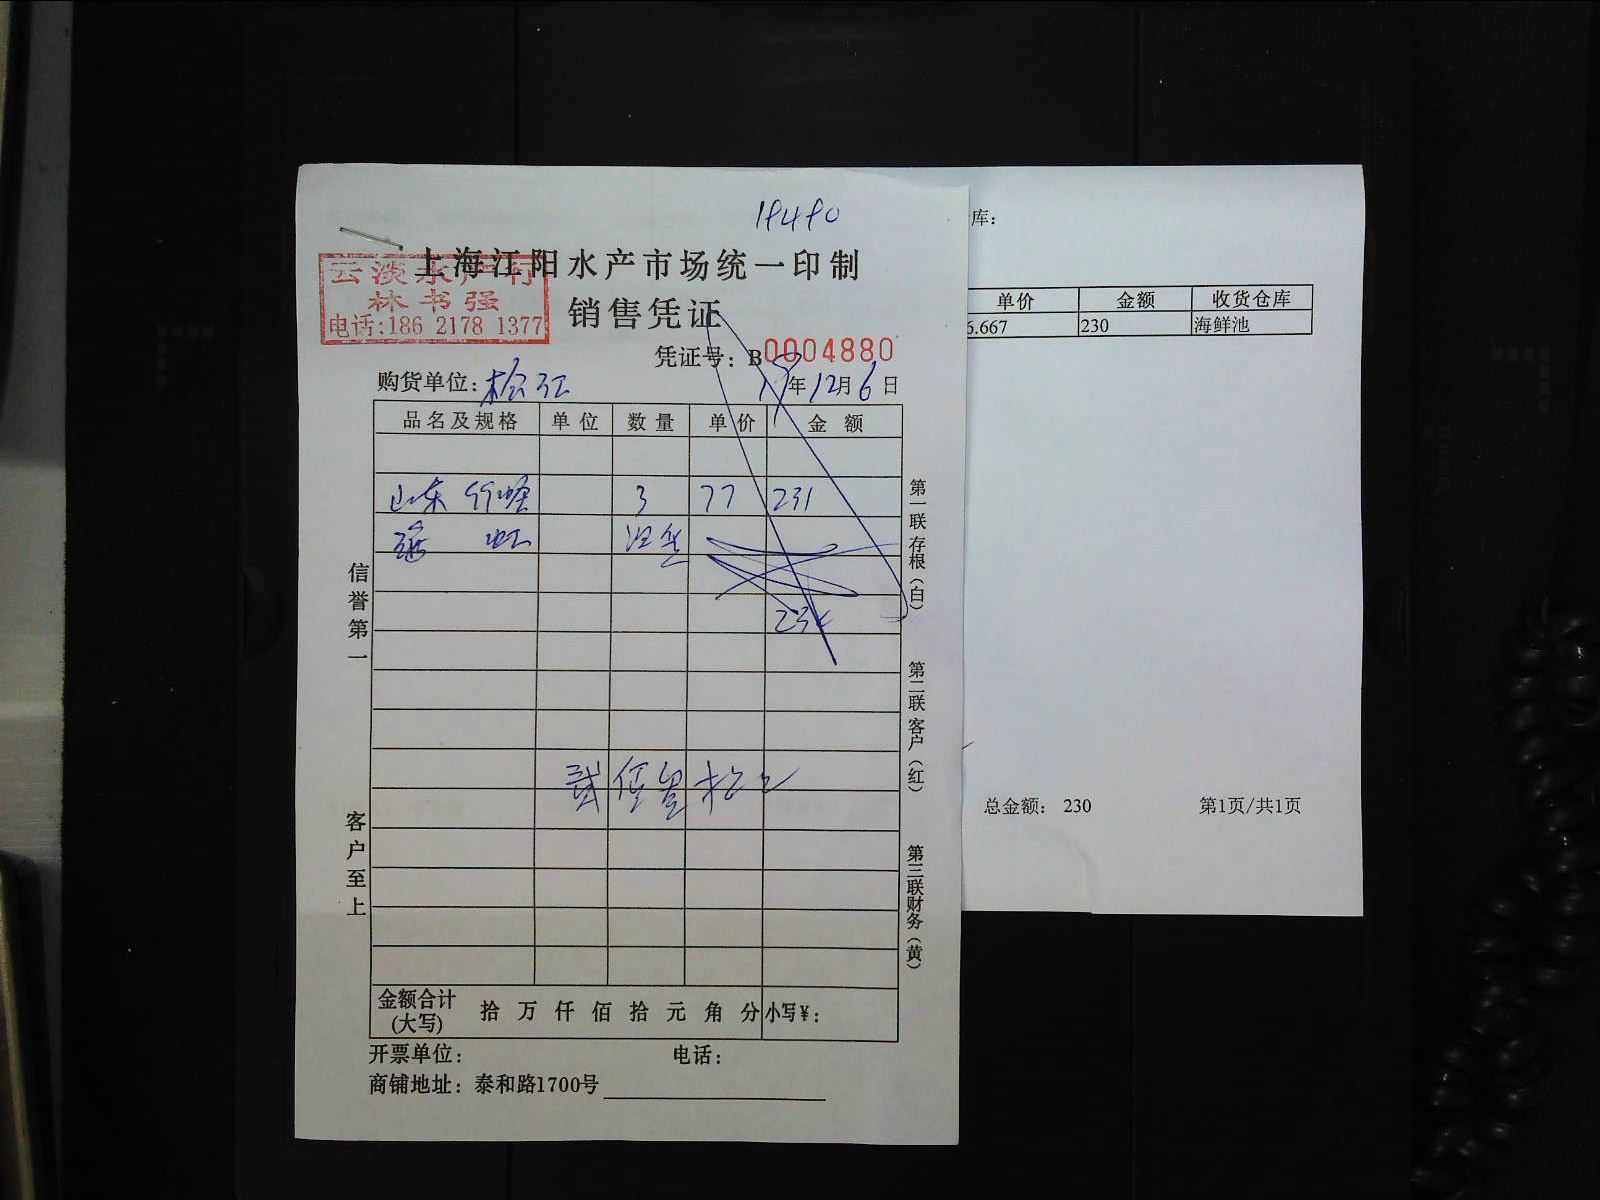 19490
上海江阳水产市场统一印制
云淡水产行
林书强
电话:186 2178 1377
销售凭证
凭证号：B0004880
购货单位：松江
19年12月6日
品名及规格 单位 数量 单价 金额
山东 竹蛏 3 77 231
23
贰佰叁拾
信誉第一
客户至上
第一联存根（白）
第二联客户（红）
第三联财务（黄）
金额合计(大写) 拾 万 仟 佰 拾 元 角 分 小写¥：
开票单位： 电话：
商铺地址：泰和路1700号
库：
单价 金额 收货仓库
6.667 230 海鲜池
总金额： 230 第1页/共1页